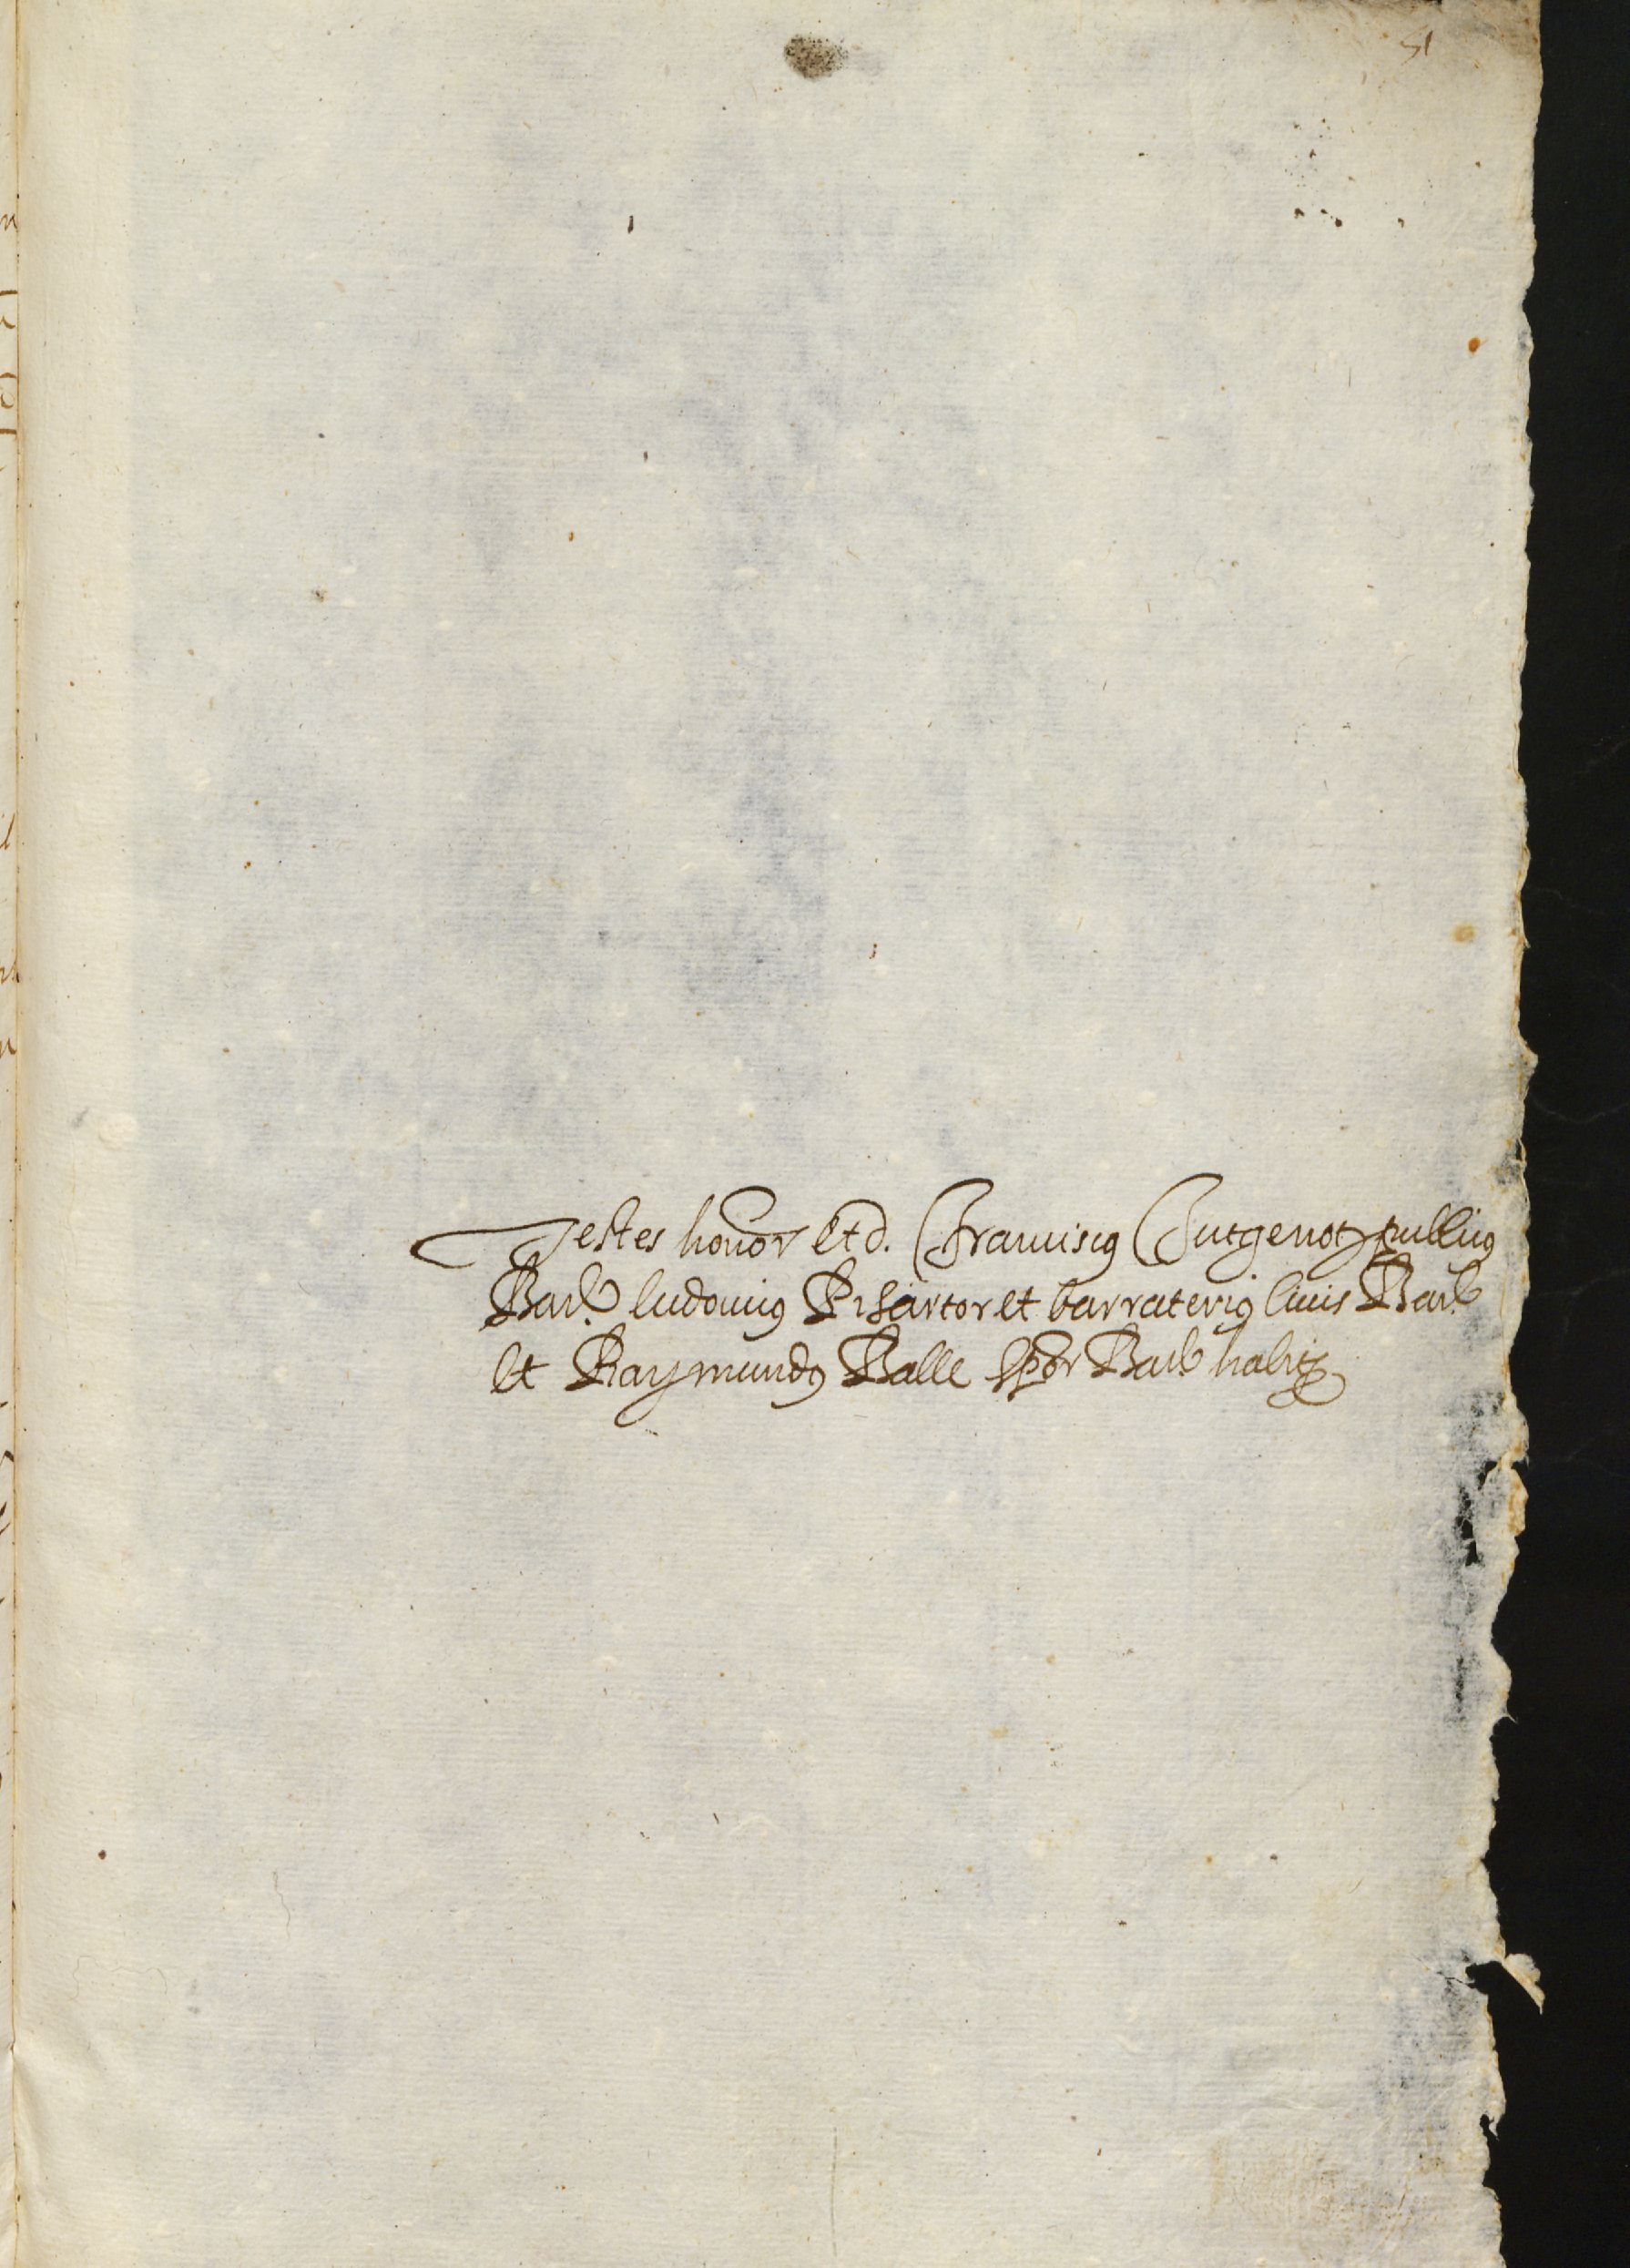 51
Testes honor et d. Franciscus Jutge not publicus
Barͣ. ludovicus Pi sartor et barraterius civis Barͣ
et Raymundus Balle sptor Barͣ habitͤ